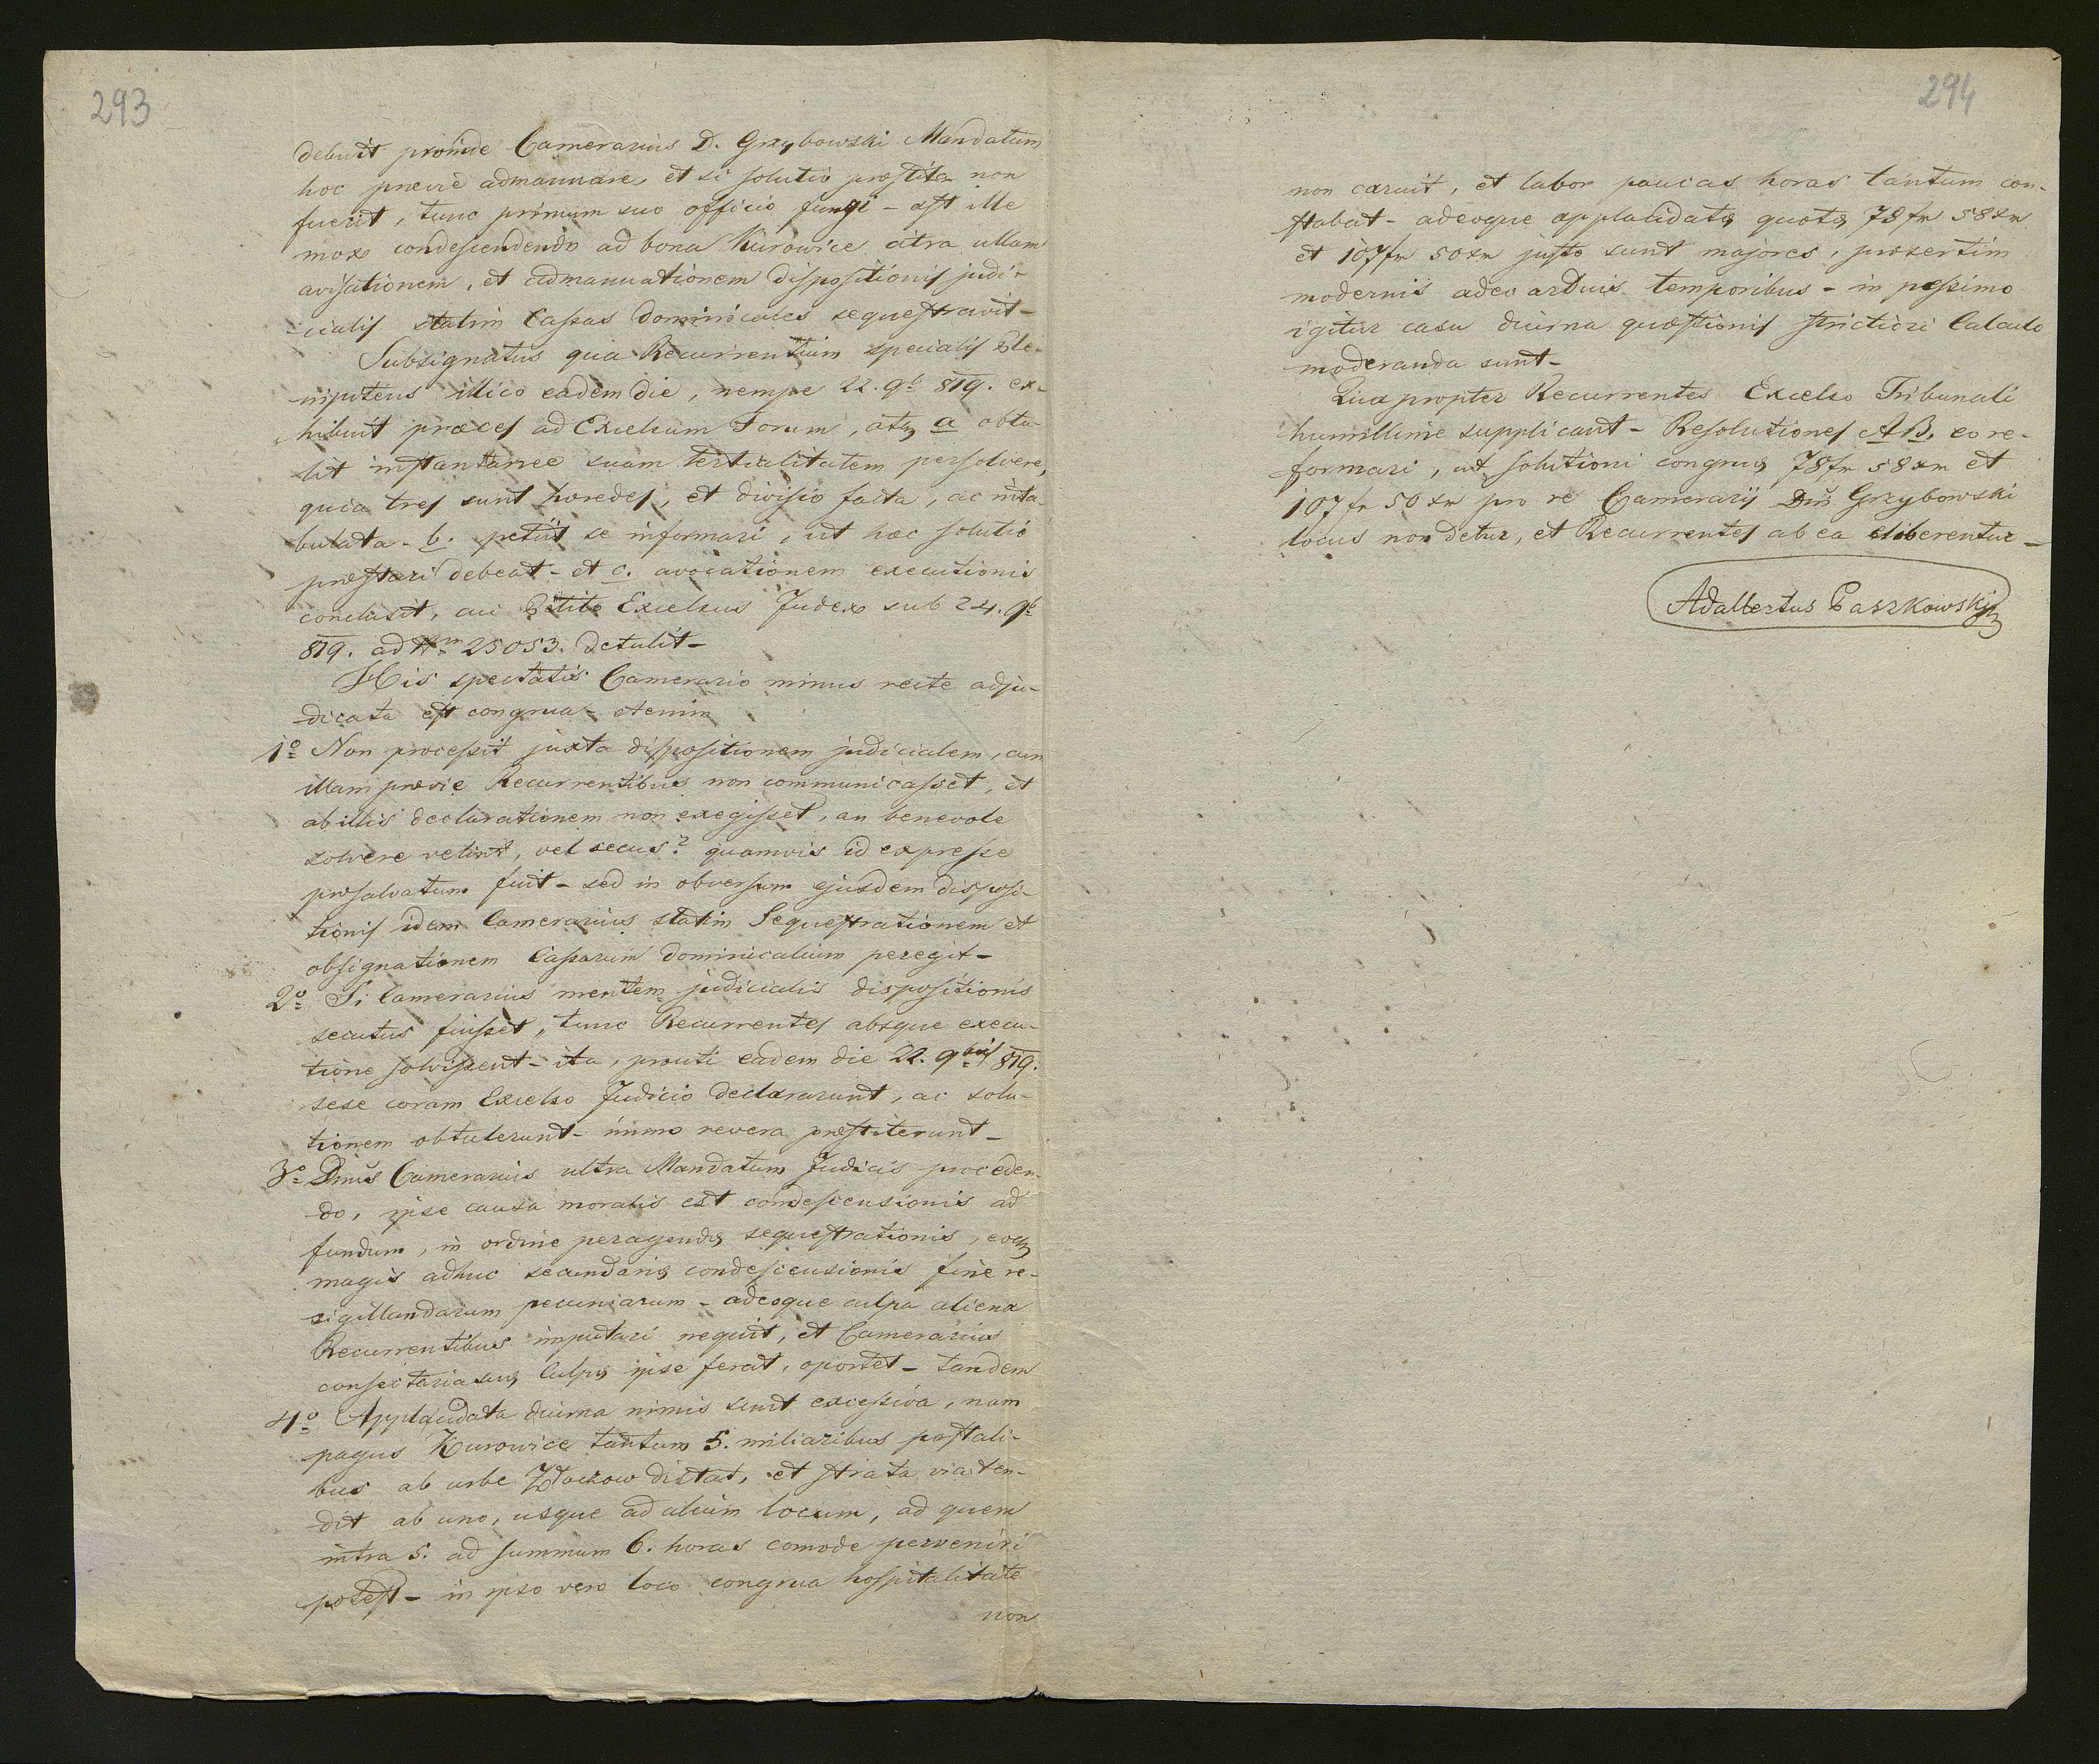 293
debuit proinde Camerarius D. Grzybowski Mandatum
hoc previe admanuare, et si solutio præstita non
fuerit, tunc primum suo officio fungi - ast ille
mox condescendendo ad bona Kurowice citra ullam
avisationem, et admanuationem dispositionis judi-
cialis statim Cassas dominicales sequestravit -
Subsignatus qua Recurrentium specialis Ple-
nipotens illico eadem die, nempe 22. 9b 819. ex-
hibuit preces ad Excelsum Forum, atq a obtu-
lit instantanee suam tertialitatem persolvere,
quia tres sunt hæredes, et divisio facta, ac inta-
bulata - b. petiit se informari, ut hæc solutio
præstari debeat - et c. avocationem executionis
conclusit, cui Petito Excelsus Judex sub 24. 9b
819. ad Nrm 25053. detulit -
His spectatis Camerario minus recte adju-
dicata est congrua - etenim
1o Non processit juxta dispositionem judicialem, cum
illam prævie Recurrentibus non communicasset, et
ab illis declarationem non exegisset, an benevole
solvere velint, vel secus? quamvis id expresse
præsalvatum fuit - sed in obversum ejusdem disposi-
tionis idem Camerarius statim Sequestrationem et
obsignationem Cassarum dominicalium peregit -
2o Si Camerarius mentem judicialis dispositionis
secutus fuisset, tunc Recurrentes absque execu-
tione solvissent - ita, prouti eadem die 22. 9bris 819.
sese coram Excelso Judicio declararunt, ac solu-
tionem obtulerunt - immo revera præstiterunt -
3o Dnus Camerarius ultra Mandatum Judicis proceden-
do, ipse causa moralis est condescensionis ad
fundum, in ordine peragendæ sequestrationis, eoq
magis adhuc secundariæ condescensionis fine re-
sigillandarum pecuniarum - adeoque culpa aliena
Recurrentibus imputari nequit, et Camerarius
consectaria suæ Culpæ ipse ferat, oportet - tandem
4o Applacidata diurna nimis sunt excessiva, nam
pagus Kurowice tantum 5. miliaribus postali-
bus ab urbe Złoczow distat, et strata via ten-
dit ab uno, usque ad alium locum, ad quem
intra 5. ad summum 6. horas comode perveniri
potest - in ipso vero loco congrua hospitalitate
non
294
non caruit, et labor paucas horas tantum con-
stabat - adeoque applacidatæ quotæ 78 fr 58 xr
et 107 fr 50 xr justo sunt majores, præsertim
modernis adeo arduis temporibus - in pessimo
igitur casu diurna quæstionis strictiori Calculo
moderanda sunt -
Qua propter Recurrentes Excelso Tribunali
humillime supplicant - Resolutiones AB. eo re-
formari, ut solutioni congruæ 78 fr 58 xr et
107 fr 50 xr pro re Camerarij Dni Grzybowski
locus non detur, et Recurrentes ab ea eliberentur -
Adalbertus Paszkowski